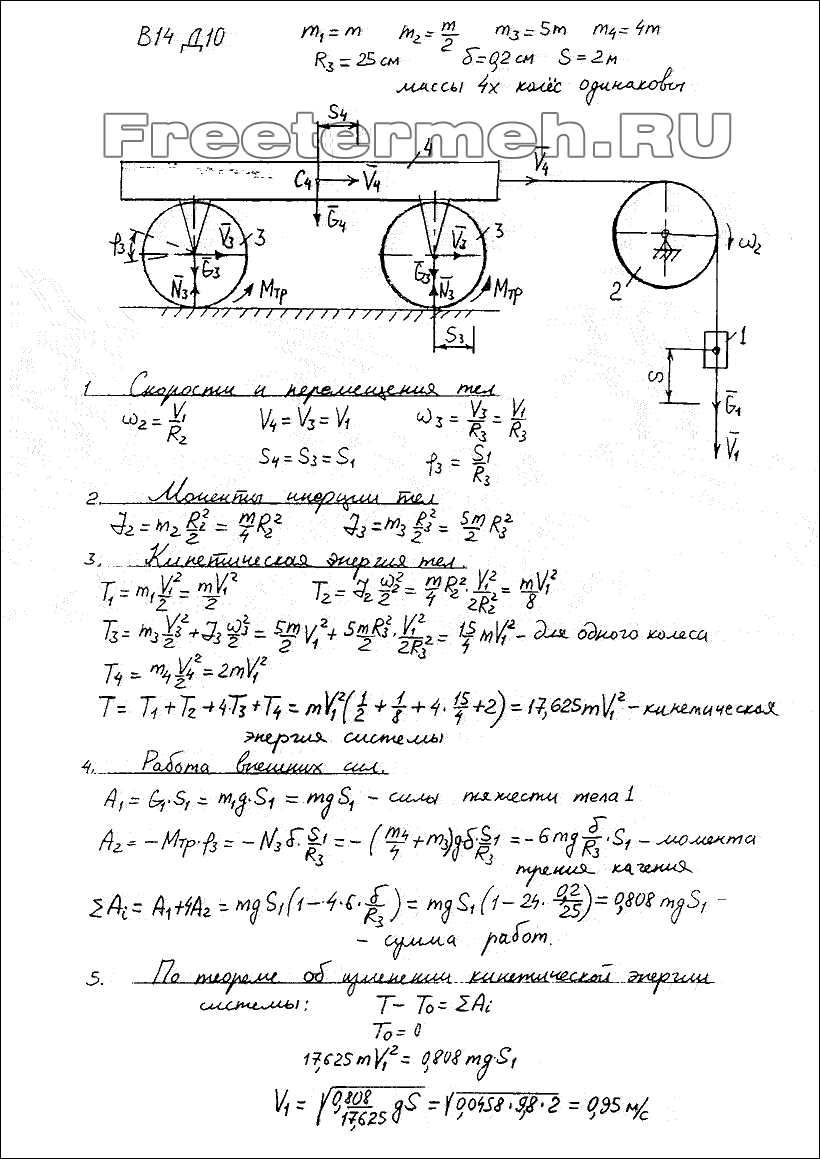 B14 Д10 m₁ = m m₂ = m/2 m₃ = 5m m₄ = 4m
R₃ = 25 см δ = 0,2 см S = 2м
массы 4х колёс одинаковы
Freetermeh.RU
S₄
4
C₄ V̄₄ V̄₄
Ḡ₄
φ₃ V̄₃ 3 V̄₃ 3 ω₂
Ḡ₃ Ḡ₃
N̄₃ Mтр N̄₃ Mтр 2
S₃ 1
S
Ḡ₁
V̄₁
1 Скорости и перемещения тел
ω₂ = V₁/R₂ V₄ = V₃ = V₁ ω₃ = V₃/R₃ = V₁/R₃
S₄ = S₃ = S₁ φ₃ = S₁/R₃
2. Моменты инерции тел
J₂ = m₂ R₂²/2 = m/4 R₂² J₃ = m₃ R₃²/2 = 5m/2 R₃²
3. Кинетическая энергия тел.
T₁ = m₁ V₁²/2 = mV₁²/2 T₂ = J₂ ω₂²/2 = m/4 R₂² · V₁²/2R₂² = mV₁²/8
T₃ = m₃ V₃²/2 + J₃ ω₃²/2 = 5m/2 V₁² + 5mR₃²/2 · V₁²/2R₃² = 15/4 mV₁² - для одного колеса
T₄ = m₄ V₄²/2 = 2mV₁²
T = T₁ + T₂ + 4T₃ + T₄ = mV₁²(1/2 + 1/8 + 4 · 15/4 + 2) = 17,625mV₁² - кинетическая
энергия системы
4. Работа внешних сил.
A₁ = G₁ · S₁ = m₁g · S₁ = mgS₁ - силы тяжести тела 1
A₂ = - Mтр · φ₃ = - N₃ δ · S₁/R₃ = - (m₄/4 + m₃)gδ S₁/R₃ = - 6mg δ/R₃ · S₁ - момента
трения качения
ΣAi = A₁+4A₂ = mgS₁(1 - 4·6 · δ/R₃) = mgS₁(1 - 24 · 0,2/25) = 0,808 mgS₁ -
- сумма работ.
5. По теореме об изменении кинетической энергии
системы: T - T₀ = ΣAi
T₀ = 0
17,625 mV₁² = 0,808 mg·S₁
V₁ = √(0,808/17,625 gS) = √(0,0458 · 9,8 · 2) = 0,95 м/с